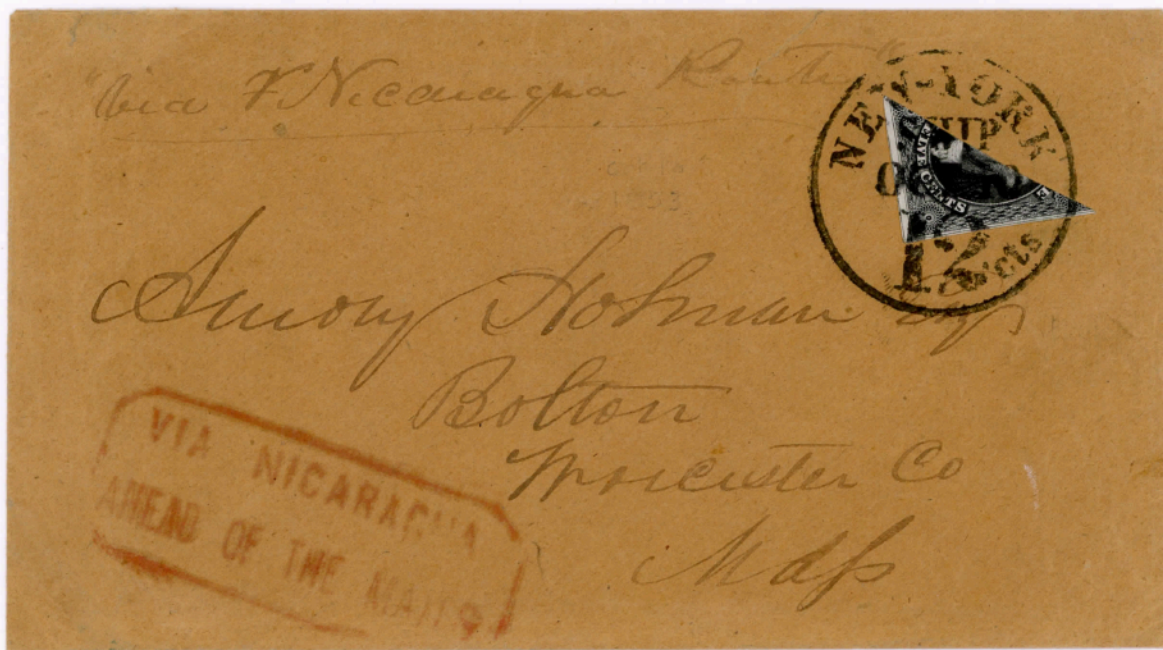 "Via Nicaragua Route"
NEW-YORK
SHIP
12 cts
CENTS
Holman Esq
Bolton
Worcester Co
Mass
VIA NICARAGUA
AHEAD OF THE MAILS